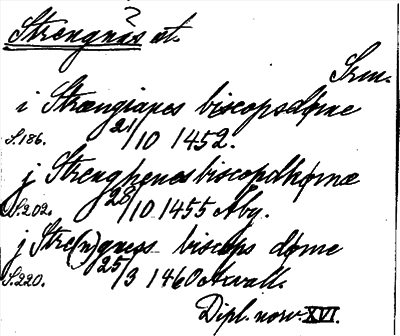 Strengnäs st.
Srm.
i Strængianes biscopsdøme
S. 186. 21/10 1452.
j Strenghenes biscopdhømæ
S. 202. 28/10 1455 Åby.
j Stre(n)gness biscops døme
S. 220. 25/3 1460 Axvall.
Dipl. norv. XVI.